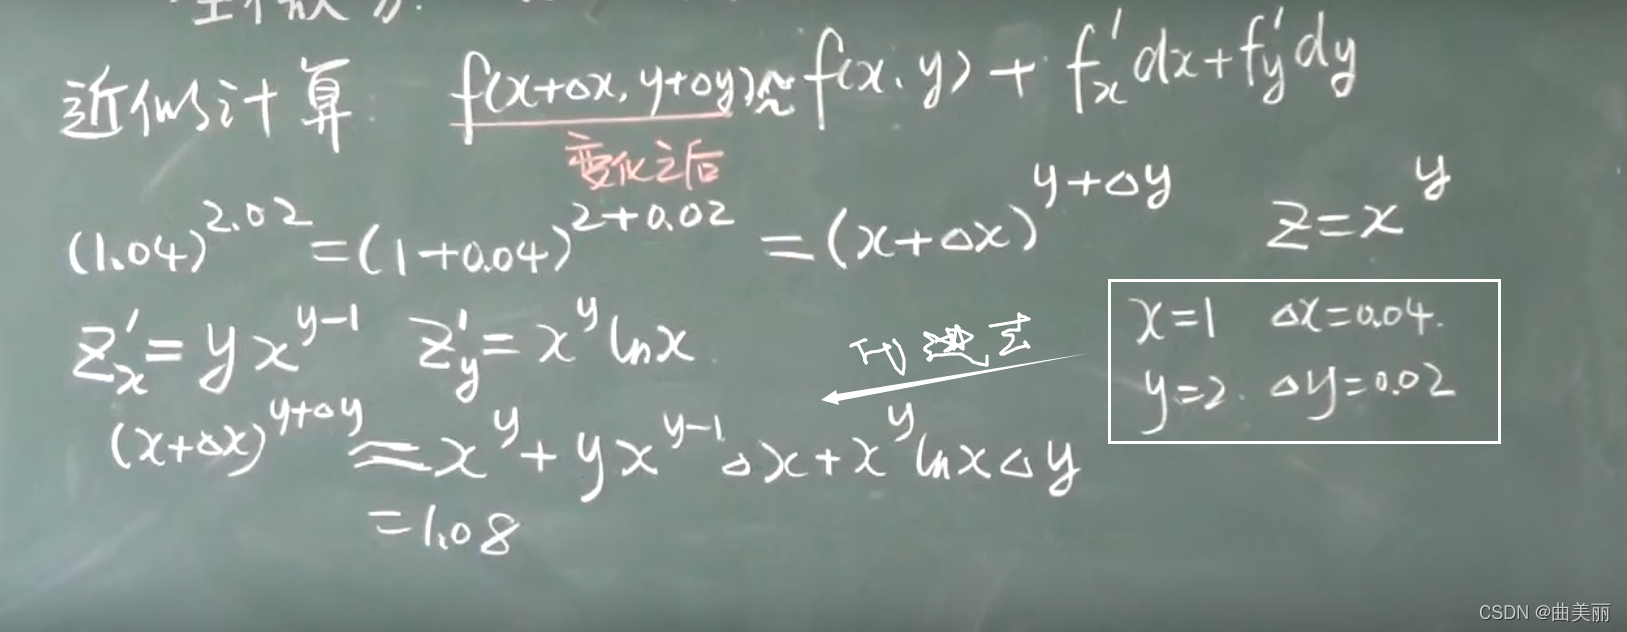 近似计算: f(x+Δx, y+Δy)≈f(x, y)+f'x dx+f'y dy
变化之后
(1.04)^2.02=(1+0.04)^2+0.02=(x+Δx)^y+Δy z=x^y
z'x=yx^y-1 z'y=x^y lnx
x=1 Δx=0.04.
y=2. Δy=0.02
(x+Δx)^y+Δy≈x^y+yx^y-1Δx+x^y lnxΔy
=1.08
CSDN @曲美丽